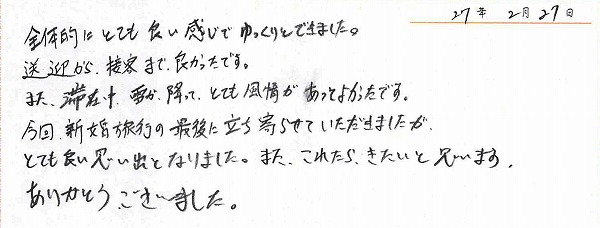 27年 2月 27日
全体的にとても良い感じでゆっくりとできました。
送迎から、接客まで、良かったです。
また、滞在中、雪が、降って、とても風情があってよかったです。
今回、新婚旅行の最後に立ち寄らせていただきましたが、
とても良い思い出となりました。また、これたら、きたいと思います。
ありがとうございました。